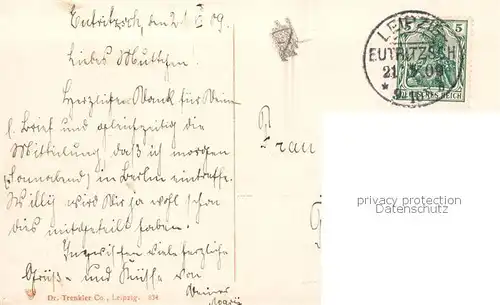 Eutritzsch, den 21. X 09.
Liebes Muttchen.
Herzlichen Dank für Deinen
l. Brief und gleichzeitig die
Mitteilung daß ich morgen
(Sonnabend) in Berlin eintreffe.
Willy wird Dir ja wohl schon
dies mitgeteilt haben.
Inzwischen viele herzliche
Grüße und Küsse von
Deiner
Marie
Frau
LEIPZIG
EUTRITZSCH
21. 09
* 9-10
5
DEUTSCHES REICH
privacy protection
Datenschutz
Dr. Trenkler Co., Leipzig.